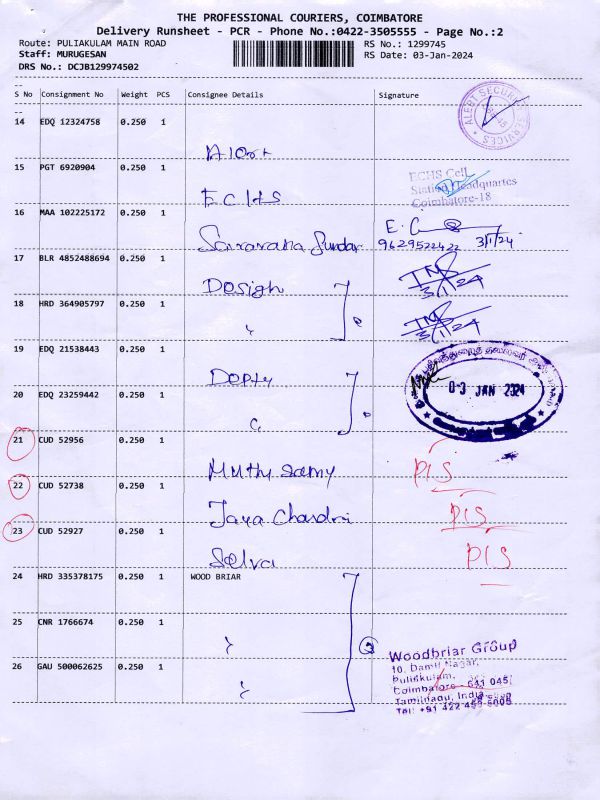 THE PROFESSIONAL COURIERS, COIMBATORE
Delivery Runsheet - PCR - Phone No.:0422-3505555 - Page No.:2
Route: PULIAKULAM MAIN ROAD
RS No.: 1299745
Staff: MURUGESAN
RS Date: 03-Jan-2024
DRS No.: DCJB129974502
S No Consignment No Weight PCS Consignee Details Signature
ALERT SECURE SERVICES
14 EDQ 12324758 0.250 1
Alert
15 PGT 6920904 0.250 1
ECHS
ECHS Cell
Station Headquartes
Coimbatore-18
16 MAA 102225172 0.250 1
Saravana Sundar
9629522422 3/1/24
17 BLR 4852488694 0.250 1
Design
3/1/24
18 HRD 364905797 0.250 1
"
3/1/24
19 EDQ 21538443 0.250 1
Dopty
03 JAN 2024
20 EDQ 23259442 0.250 1
"
21 CUD 52956 0.250 1
Muthusamy PIS
22 CUD 52738 0.250 1
Jaya Chandri PIS
23 CUD 52927 0.250 1
Selva PIS
24 HRD 335378175 0.250 1 WOOD BRIAR
25 CNR 1766674 0.250 1
"
26 GAU 500062625 0.250 1
"
Woodbriar Group
10, Damu Nagar,
Puliakulam,
Coimbatore - 641 045
Tamilnadu, India
Tel: +91 422